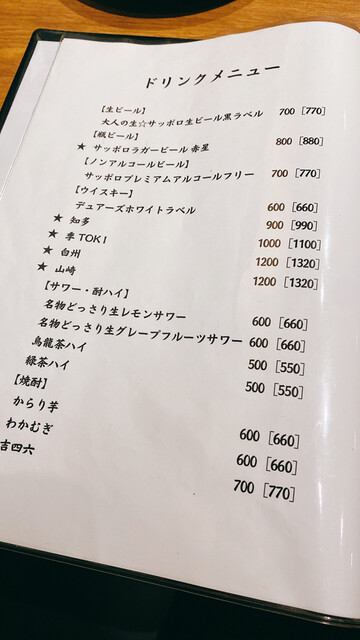 ドリンクメニュー
【生ビール】
大人の生☆サッポロ生ビール黒ラベル 700 [770]
【瓶ビール】
★ サッポロラガービール 赤星 800 [880]
【ノンアルコールビール】
サッポロプレミアムアルコールフリー 700 [770]
【ウイスキー】
デュアーズホワイトラベル 600 [660]
★ 知多 900 [990]
★ 季 TOKI 1000 [1100]
★ 白州 1200 [1320]
★ 山崎 1200 [1320]
【サワー・酎ハイ】
名物どっさり生レモンサワー 600 [660]
名物どっさり生グレープフルーツサワー 600 [660]
烏龍茶ハイ 500 [550]
緑茶ハイ 500 [550]
【焼酎】
からり芋 600 [660]
わかむぎ 600 [660]
吉四六 700 [770]